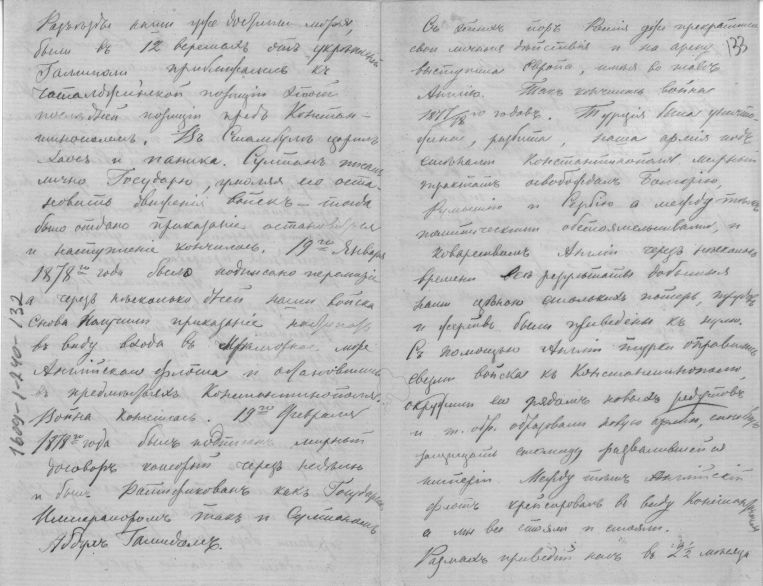 Разъѣзды наши уже достигли моря,
были въ 12 верстахъ отъ укрѣпленій
Галиполи приближаясь къ
Чаталджинской позиціи этой
послѣдней позиціи предъ Констан-
тинополемъ. Въ Стамбулѣ царилъ
хаосъ и паника. Султанъ писалъ
лично Государю, умоляя его оста-
новить движеніе войскъ — тогда
было отдано приказаніе остановиться
и наступленіе кончилось. 19го Января
1878го года было подписано перемиріе
а черезъ нѣсколько дней наши войска
снова получили приказаніе
въ виду входа въ Мраморное море
Англійскаго флота и остановились
въ предмѣстьяхъ Константинополя.
Война кончилась. 19го Февраля
1878го года былъ подписанъ мирный
договоръ который черезъ недѣлю
и былъ ратификованъ какъ Государемъ
Императоромъ такъ и Султаномъ
Абдулъ Гамидомъ.
1609-1-290-132
133
Съ этихъ поръ Россія уже прекратила
свои личныя дѣйствія и на арену
выступила Европа, имѣя во главѣ
Англію. Такъ кончилась война
1877/78го годовъ. Турція была уничто-
жена, разбита, наша армія подъ
стѣнами Константинополя мирный
трактатъ освобождалъ Болгарію,
Румынію и Сербію а между тѣмъ
политическими обстоятельствами, и
коварствомъ Англіи черезъ нѣсколько
времени всѣ результаты добытые
нами цѣною столькихъ потерь, трудовъ
и жертвъ были приведены къ нулю.
Съ помощью Англіи турки оправились
свезли войска къ Константинополю
окружили его рядомъ новыхъ редутовъ
и т. обр. образовали новую армію, способную
защищать столицу развалившейся
имперіи. Между тѣмъ Англійскій
флотъ крейсировалъ въ виду Константинополя
а мы все стояли и стояли.
Размахъ приведшій насъ въ 2½ мѣсяца